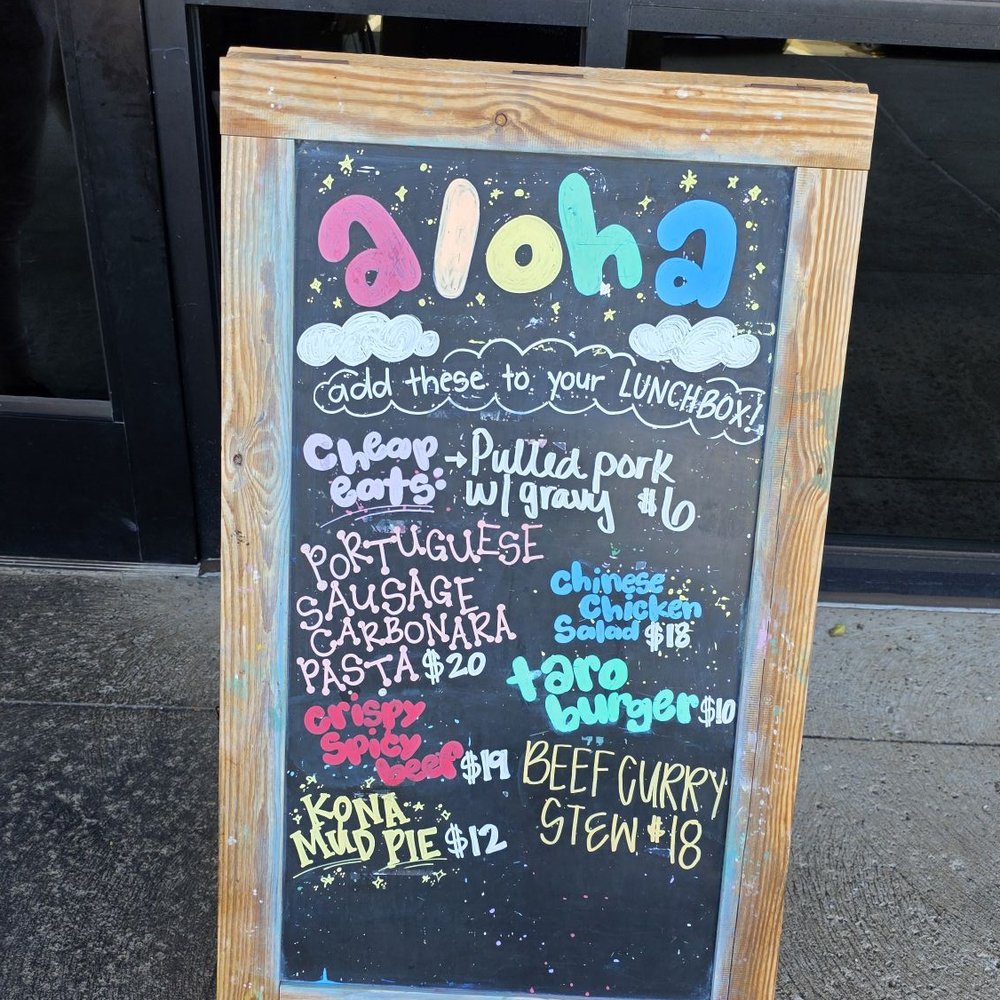 aloha
add these to your LUNCHBOX!
Cheap
eats:
→Pulled pork
w/ gravy $6
PORTUGUESE
SAUSAGE
CARBONARA
PASTA $20
Chinese
Chicken
Salad $18
crispy
spicy
beef $19
taro
burger $10
KONA
MUD PIE $12
BEEF CURRY
STEW $18